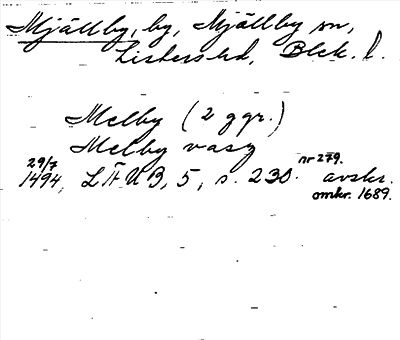 Mjällby, by, Mjällby sn,
Listers hd, Blek. l.
Melby (2 ggr.)
Melby vasz
29/7 nr 279.
1494, LÄUB, 5, s. 230. avskr.
omkr. 1689.